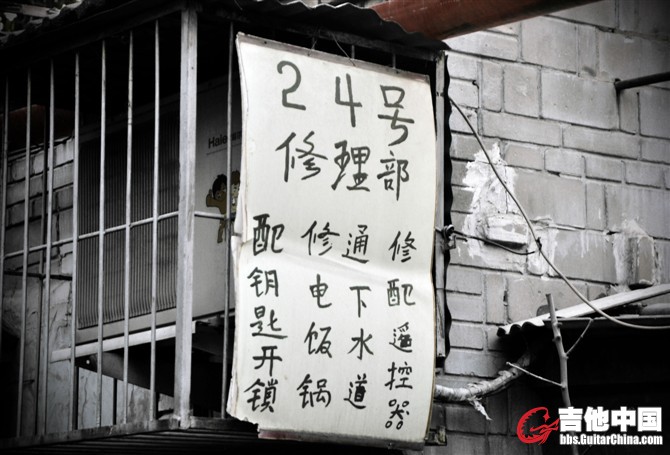 24号
修理部
配钥匙开锁
修电饭锅
通下水道
修配遥控器
Haier
吉他中国
bbs.GuitarChina.com